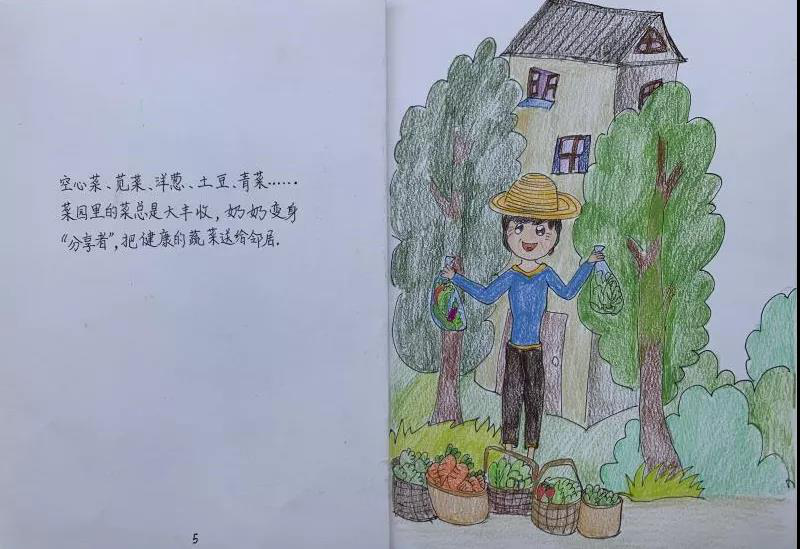 空心菜、苋菜、洋葱、土豆、青菜……
菜园里的菜总是大丰收，奶奶变身
“分享者”，把健康的蔬菜送给邻居.
5